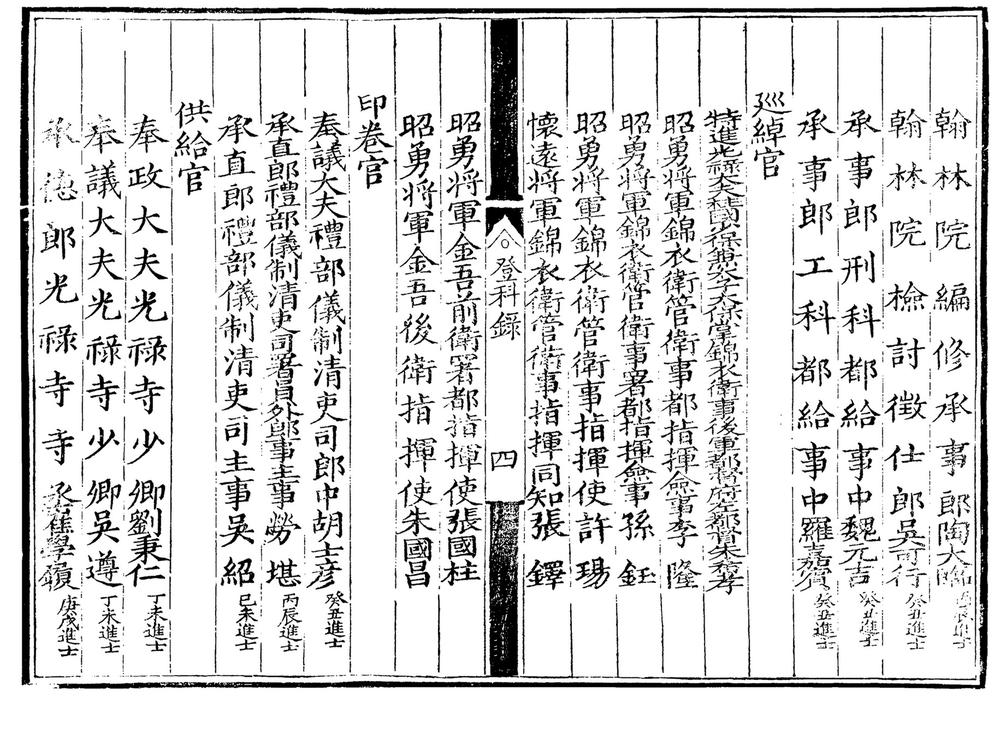 翰林院編修承事郎陶大臨丙辰進士
翰林院檢討徵仕郎吳可行癸丑進士
承事郎刑科都給事中魏元吉癸丑進士
承事郎工科都給事中羅嘉賓癸丑進士
廵綽官
特進光祿大夫柱國少保兼太子太保掌錦衣衛事後軍都督府左都督朱希孝
昭勇將軍錦衣衛管衛事都指揮僉事李隆
昭勇將軍錦衣衛管衛事署都指揮僉事孫鈺
昭勇將軍錦衣衛管衛事指揮使許瑒
懷遠將軍錦衣衛管衛事指揮同知張鐸
登科録
四
昭勇將軍金吾前衛署都指揮使張國柱
昭勇將軍金吾後衛指揮使朱國昌
印卷官
奉議大夫禮部儀制清吏司郎中胡士彥癸丑進士
承直郎禮部儀制清吏司署員外郎事主事勞堪丙辰進士
承直郎禮部儀制清吏司主事吳紹己未進士
供給官
奉政大夫光祿寺少卿劉秉仁丁未進士
奉議大夫光祿寺少卿吳遵丁未進士
承德郎光祿寺寺丞焦學顏庚戌進士